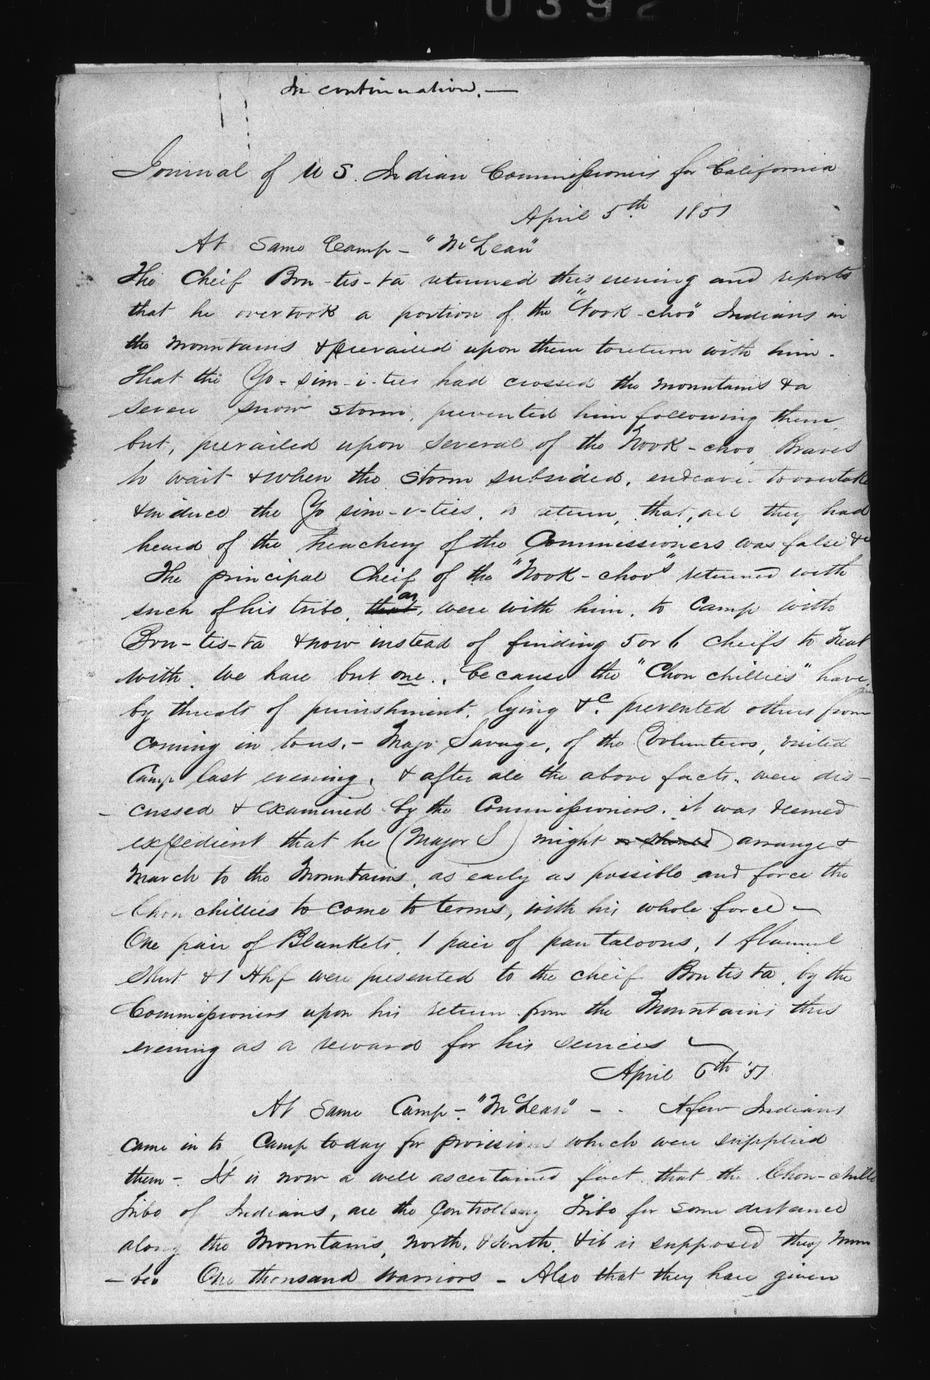 0392
In continuation. —
Journal of U S. Indian Commissioners for California
April 5th 1851
At Same Camp - "McLean"
The Cheif Bon-tis-ta returned this evening and reports
that he overtook a portion of the "Nook-choo" Indians in
the Mountains & prevailed upon them to return with him.
That the Yo-sim-i-ties had crossed the mountains & a
severe snow storm, prevented him following them
but, prevailed upon several of the Nook-choo Braves
to wait & when the Storm subsided, endeavor to overtake
& induce the Yo sim-i-ties, to return, that, all they had
heard of the treachery of the Commissioners was false &c
The principal Cheif of the "Nook-choo" returned with
such of his tribe, that as, were with him, to Camp with
Bon-tis-ta & now instead of finding 5 or 6 cheifs to treat
with, we have but one., because the "Chon chillies" have,
by threats of punishment, lying &c. prevented others from
coming in to us. - Majr Savage, of the Volunteers, visited
Camp last evening, & after all the above facts, were dis-
-cussed & examined by the Commissioners, it was deemed
expedient that he (Major S) might or should arrange &
March to the Mountains, as early as possible and force the
Chon chillies to come to terms, with his whole force —
One pair of Blankets, 1 pair of pantaloons, 1 flannel
Shirt & 1 Hkf were presented to the cheif Bon tis ta, by the
Commissioners upon his return from the Mountains this
evening as a reward for his services —
April 6th '51
At Same Camp - "McLean" - - A few Indians
came in to Camp today for provisions which were supplied
them - It is now a well ascertained fact, that the Chon-chillie
Tribe of Indians, are the Controlling Tribe for some distance
along the Mountains, North, & South, & it is supposed they num
-ber One thousand Warriors - Also that they have given